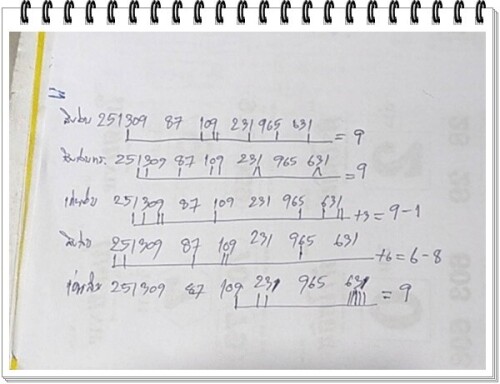 251309 87 109 231 965 631 = 9
251309 87 109 231 965 631 = 9
251309 87 109 231 965 631 +3 = 9-1
251309 87 109 231 965 631 +6 = 6-8
251309 87 109 231 965 631 = 9